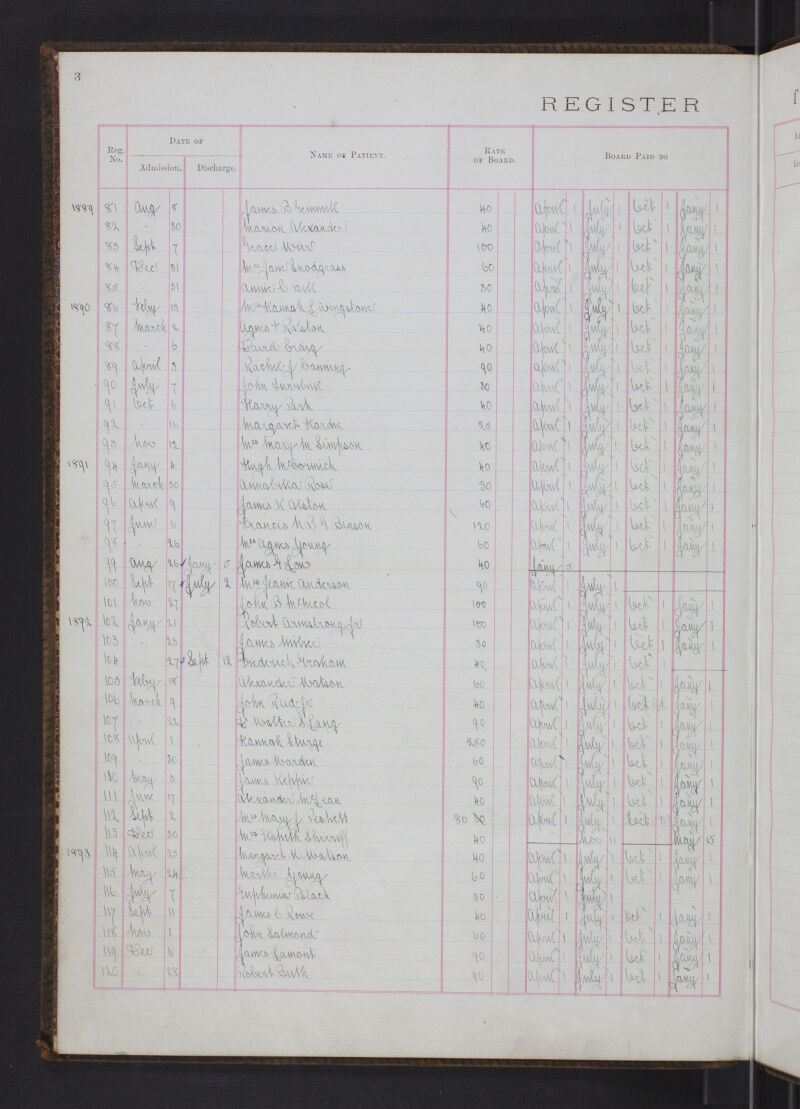 3
REGISTER
Reg. No. DATE OF Admission. Discharge. NAME OF PATIENT. RATE OF BOARD. BOARD PAID TO
1889 81 Aug 8 James B Gemmell 40 April 1 July 1 Oct 1 Jany 1
82 " 30 Marion Alexander 40 April 1 July 1 Oct 1 Jany 1
83 Sept 7 Grace Weir 100 April 1 July 1 Oct 1 Jany 1
84 Dec 31 Mrs Jane Snodgrass 60 April 1 July 1 Oct 1 Jany 1
85 31 Annie C Bell 30 April 1 July 1 Oct 1 Jany 1
1890 86 Feby 13 Mrs Hannah Livingstone 40 April 1 July 1 Oct 1 Jany 1
87 March 2 Agnes Ralston 40 April 1 July 1 Oct 1 Jany 1
88 " 6 David Craig 40 April 1 July 1 Oct 1 Jany 1
89 April 3 Rachel J Canning 90 April 1 July 1 Oct 1 Jany 1
90 July 7 John Turnbull 30 April 1 July 1 Oct 1 Jany 1
91 Oct 6 Harry Park 40 April 1 July 1 Oct 1 Jany 1
92 16 Margaret Hardie 25 April 1 July 1 Oct 1 Jany 1
93 Nov 12 Mrs Mary M Simpson 40 April 1 July 1 Oct 1 Jany 1
1891 94 Jany 4 Hugh McCormick 40 April 1 July 1 Oct 1 Jany 1
95 March 30 Annabella Rose 30 April 1 July 1 Oct 1 Jany 1
96 April 9 James K Alston 60 April 1 July 1 Oct 1 Jany 1
97 June 6 Francis Benson 120 April 1 July 1 Oct 1 Jany 1
98 " 26 Mrs Agnes Young 60 April 1 July 1 Oct 1 Jany 1
99 Aug 26 Jany 5 James Low 40 Jany 5
100 Sept 17 July 2 Mrs Jeanie Anderson 90 April 1 July 1
101 Nov 27 John B McNicol 100 April 1 July 1 Oct 1 Jany 1
1892 102 Jany 21 Robert Armstrong Jr 100 April 1 July 1 Oct 1 Jany 1
103 " 25 James Milne 30 April 1 July 1 Oct 1 Jany 1
104 " 27 Sept 12 Frederick Graham 40 April 1 July 1 Oct 1
105 Feby 18 Alexander Watson 60 April 1 July 1 Oct 1 Jany 1
106 March 9 John Reid Jr 40 April 1 July 1 Oct 1 Jany 1
107 " 22 Dr Walter Lang 90 April 1 July 1 Oct 1 Jany 1
108 April 1 Hannah Sturge 250 April 1 July 1 Oct 1 Jany 1
109 " 30 James Warden 60 April 1 July 1 Oct 1 Jany 1
110 May 3 James Keppie 90 April 1 July 1 Oct 1 Jany 1
111 June 17 Alexander McLean 40 April 1 July 1 Oct 1 Jany 1
112 Sept 2 Mrs Mary J 80 April 1 July 1 Oct Jany 1
113 Dec 30 Mrs Elspeth Shirreff 40 Nov 11 May 15
1893 114 April 25 Margaret W Watson 40 April 1 July 1 Oct 1 Jany 1
115 May 24 Martha Young 60 April 1 July 1 Oct 1 Jany 1
116 July 7 Euphemia Black 30 April 1 July 1
117 Sept 11 James C Rowe 40 April 1 July 1 Oct 1 Jany 1
118 Nov 1 John Salmond 60 April 1 July 1 Oct 1 Jany 1
119 Dec 6 James Lamont 90 April 1 July 1 Oct 1 Jany 1
120 " 28 Robert Beith 90 April 1 July 1 Oct 1 Jany 1